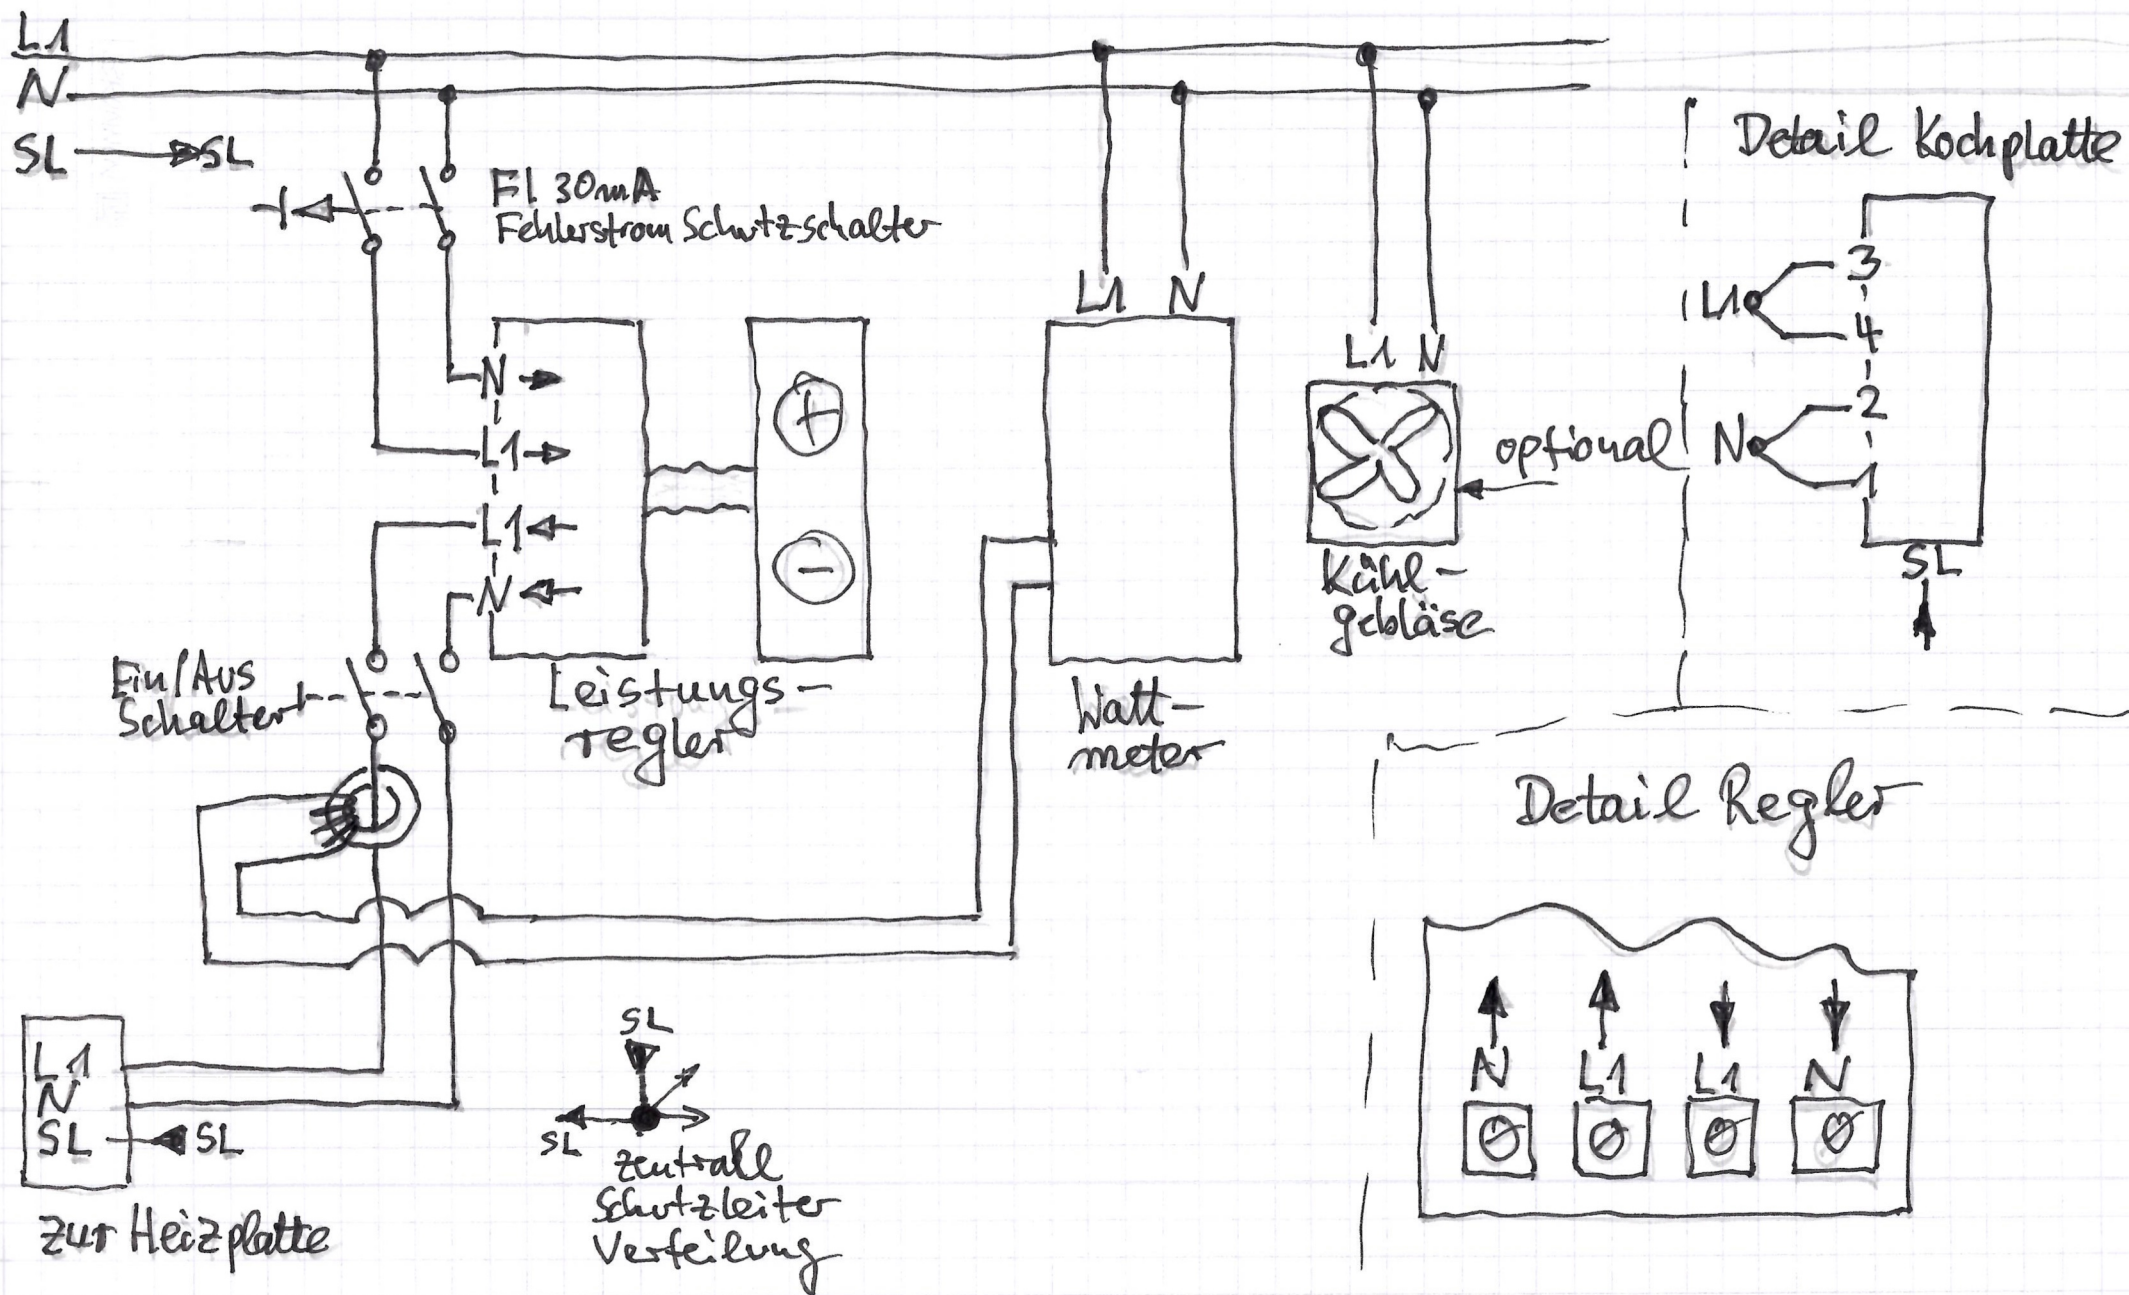 L1
N
SL SL
FI 30mA
Fehlerstrom Schutzschalter
N
L1
L1
N
+
-
Leistungs-
regler
Ein/Aus
Schalter
L1 N
Watt-
meter
L1 N
optional
Kühl-
gebläse
Detail Kochplatte
L1
3
4
N
2
1
SL
Detail Regler
N L1 L1 N
L1
N
SL SL
zur Heizplatte
SL
SL
zentrale
Schutzleiter
Verteilung